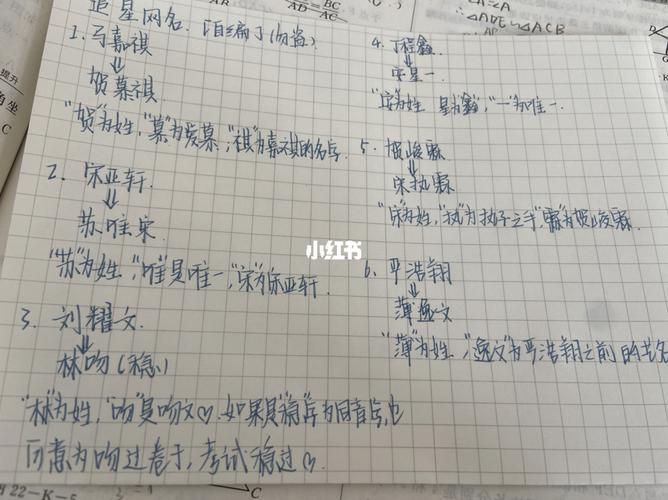 追星网名. 自编了(勿盗)
1. 马嘉祺
贺慕祺
"贺"为姓,"慕"为爱慕,"祺"为嘉祺的名字.
2. 宋亚轩.
苏唯宋
"苏"为姓,"唯"是唯一,"宋"为宋亚轩.
3. 刘耀文.
林吻(稳)
"林"为姓,"吻"是吻文♡.如果是"稳"字为同音字,也
可意为吻过卷子,考试稳过♡.
4. 丁程鑫.
宋星一.
"宋"为姓 星为"鑫","一"为唯一.
5. 贺峻霖.
宋执霖
"宋"为姓,"执"为执子之手,"霖"为贺峻霖.
6. 严浩翔
薄逸文
"薄"为姓,"逸文"为严浩翔之前的艺名
小红书
BC
AC
AD
∽△ACB
提升
角坐
C
22-K-5
C